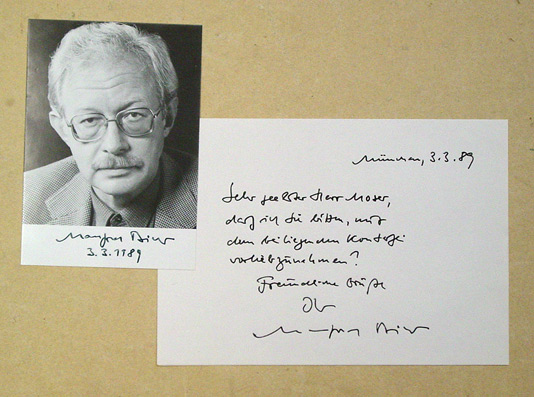 Manfred Bieler
3.3.1989
München, 3.3.89
Sehr geehrter Herr Moser,
darf ich Sie bitten, mit
dem beiliegenden Konterfei
vorliebzunehmen?
Freundliche Grüße
Ihr
Manfred Bieler